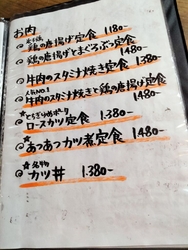 お肉
鶏の唐揚げ定食 1180-
鶏の唐揚げとまぐろぶつ定食 1480-
牛肉のスタミナ焼き定食 1380-
人気NO.1
牛肉のスタミナ焼きと鶏の唐揚げ定食 1480-
とちぎゆめポーク
ロースカツ定食 1380-
あつあつカツ煮定食 1480-
名物
カツ丼 1.380-